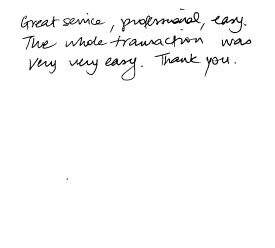 Great service, professional, easy.
The whole transaction was
very very easy. Thank you.